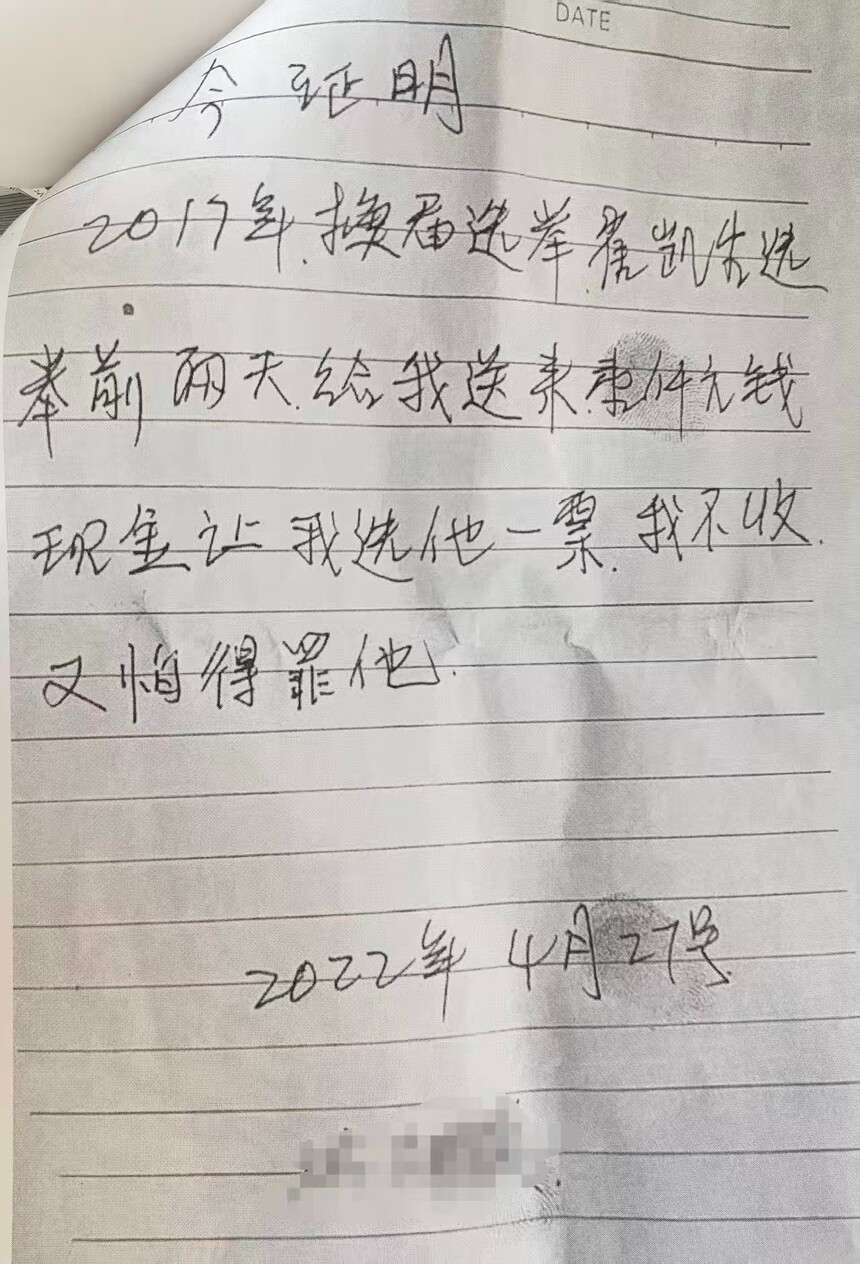 DATE
今证明
2017年.换届选举.凯选
举前两天.给我送来.仟元钱
现金让我选他一票.我不收.
又怕得罪他.
2022年 4月27号.